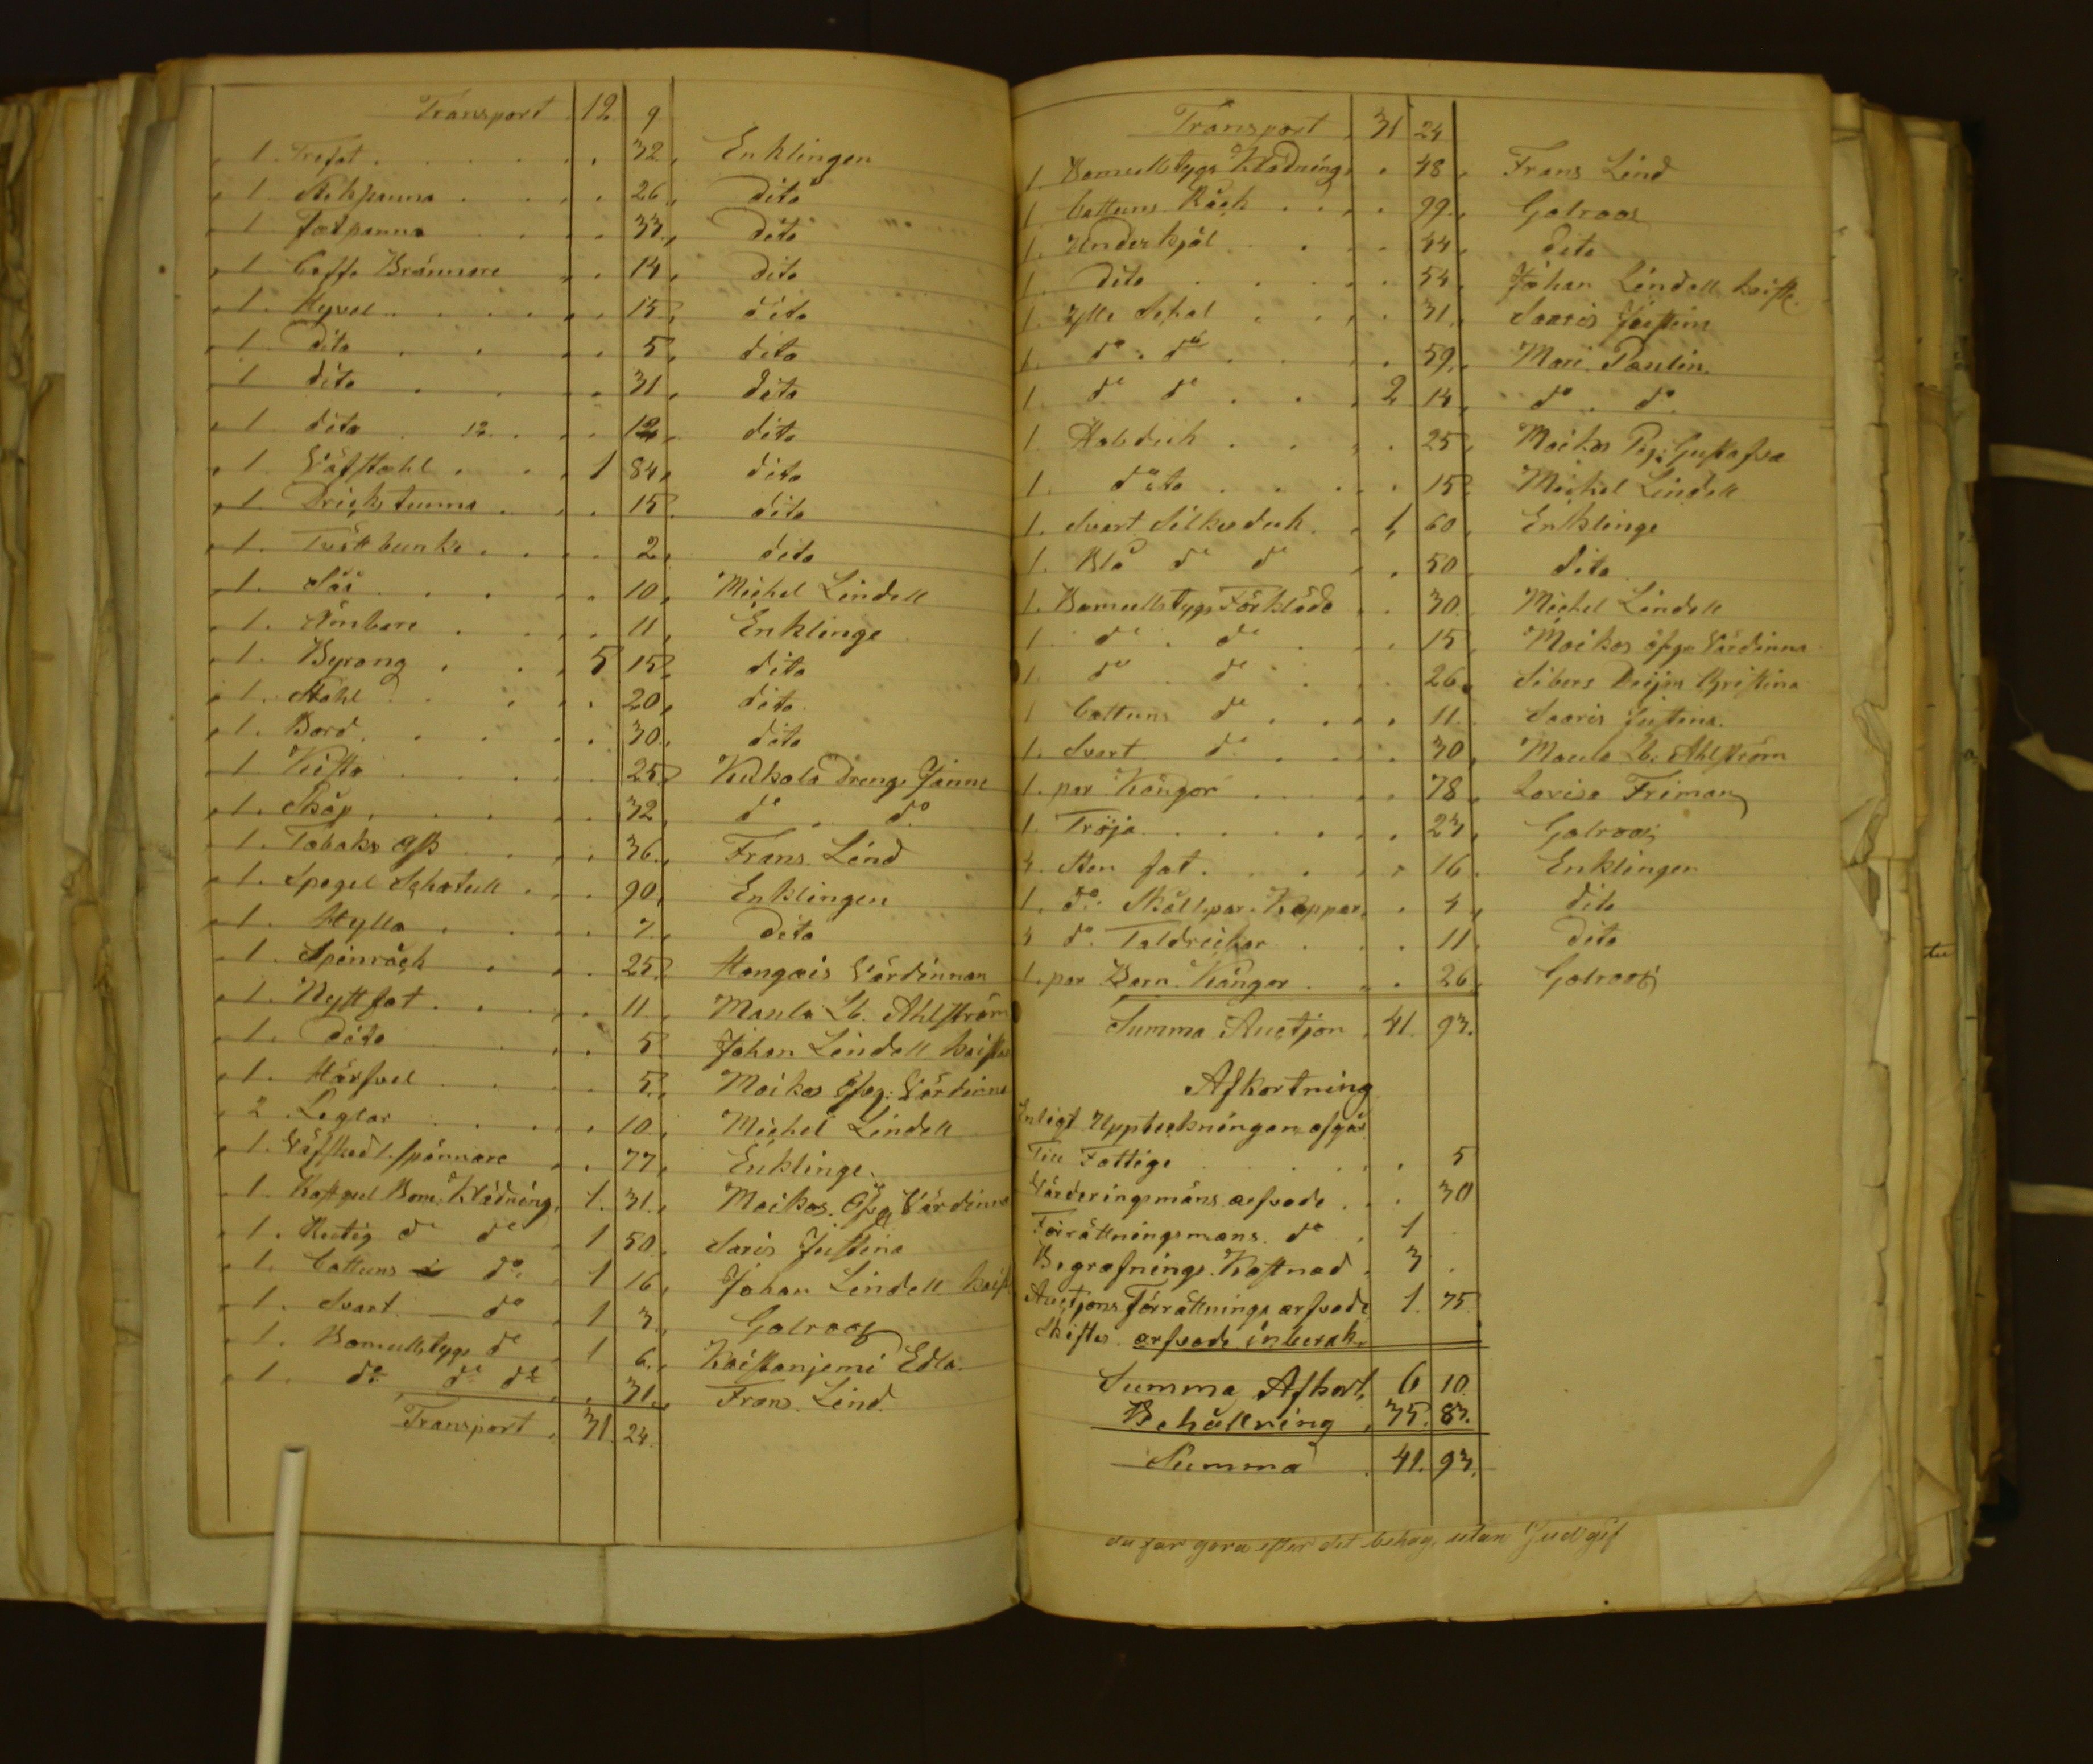 Transport 12 9
1. Trefot 32 Enklingen
1 Stekpanna 26 dito
1 Fatpanna 33 dito
1 Caffe Brännare 14 dito
1. Hyvel 15 dito
1 dito 5 dito
1 dito 31 dito
1 dito 12 12 dito
1 Väfstohl 1 84 dito
1. Dricks tunna 15 dito
1. Tvätt bunke 2 dito
1. Såå 10 Michel Lindell
1. Ämbare 11 Enklinge
1. Byrong 5 15 dito
1. Stohl 20 dito
1. Bord 30 dito
1 Kista 25 Kukola Dreng Janne
1. Skåp 32 do do
1. Tobaks ask 36 Frans Lind
1. Spegel Schatull 90 Enklingen
1. Hylla 7 dito
1 Spinråck 25 Hongais Värdinnan
1. Bytt fat 11 Maula Lb. Ahlström
1. dito 5 Johan Lindell
1. Hårfvel 5 Moikos Öfvg: Värdinna
2 Leglar 10 Michel Lindell
1. Väfsked 1. spännare 77 Enklinge
1. Bom. Klädning 1. 31 Moikos Öfvg Värdinna
1. Rutig do do 1 50 Saris Justina
1. Cattuns do 1 16 Johan Lindell
1. Svart do 1 3 Golroos
1. Bomullstygs do 1 6 Edla
1. do do do 31 Frans Lind
Transport 31 24
Transport 31 24
1. Bomullstygs Klädning 48 Frans Lind
1 Cattuns Råck 99 Golroos
1. Underkjol 44 dito
1. dito 54 Johan Lindell
1. Ylle Schal 31 Saaris Justina
1. do do 59 Mari Paulin
1. do do 2 14 do do
1. Halsduk 25 Moikos Pig: Gustafva
1. dito 15 Michel Lindell
1. Svart Silkesduk 1 60 Enklinge
1. Blå do do 50 dito
1. Bomullstygs Förkläde 30 Michel Lindell
1 do do 15 Moikos öfvg Värdinna
1 do do 26 Sibers Pigan Kristina
1 Cattuns do 11 Saaris Justina
1. Svart do 30 Maula Lb. Ahlström
1. par Kängor 78 Lovisa Friman
1. Tröja 23 Golroos
4. Sten fat 16 Enklingen
1. do Skål. par. Koppar 4 dito
4 do Taldreikar 11 dito
1. par Barn Kängor 26 Golroos
Summa Auctjon 41. 93.
Afkortning
Enligt Uppteckningen afgår
Till Fattige 5
Värderingsmäns arfvode 30
Förrättningsmans do 1
Begrafnings Kostnad 3
Auctjons Förrättnings arfvode 1. 75
Skiftes arfvode inberäk
Summa Afkort 6 10
Behållning 35. 83.
Summa 41. 93.
du får göra efter det behag, utan Gud gif